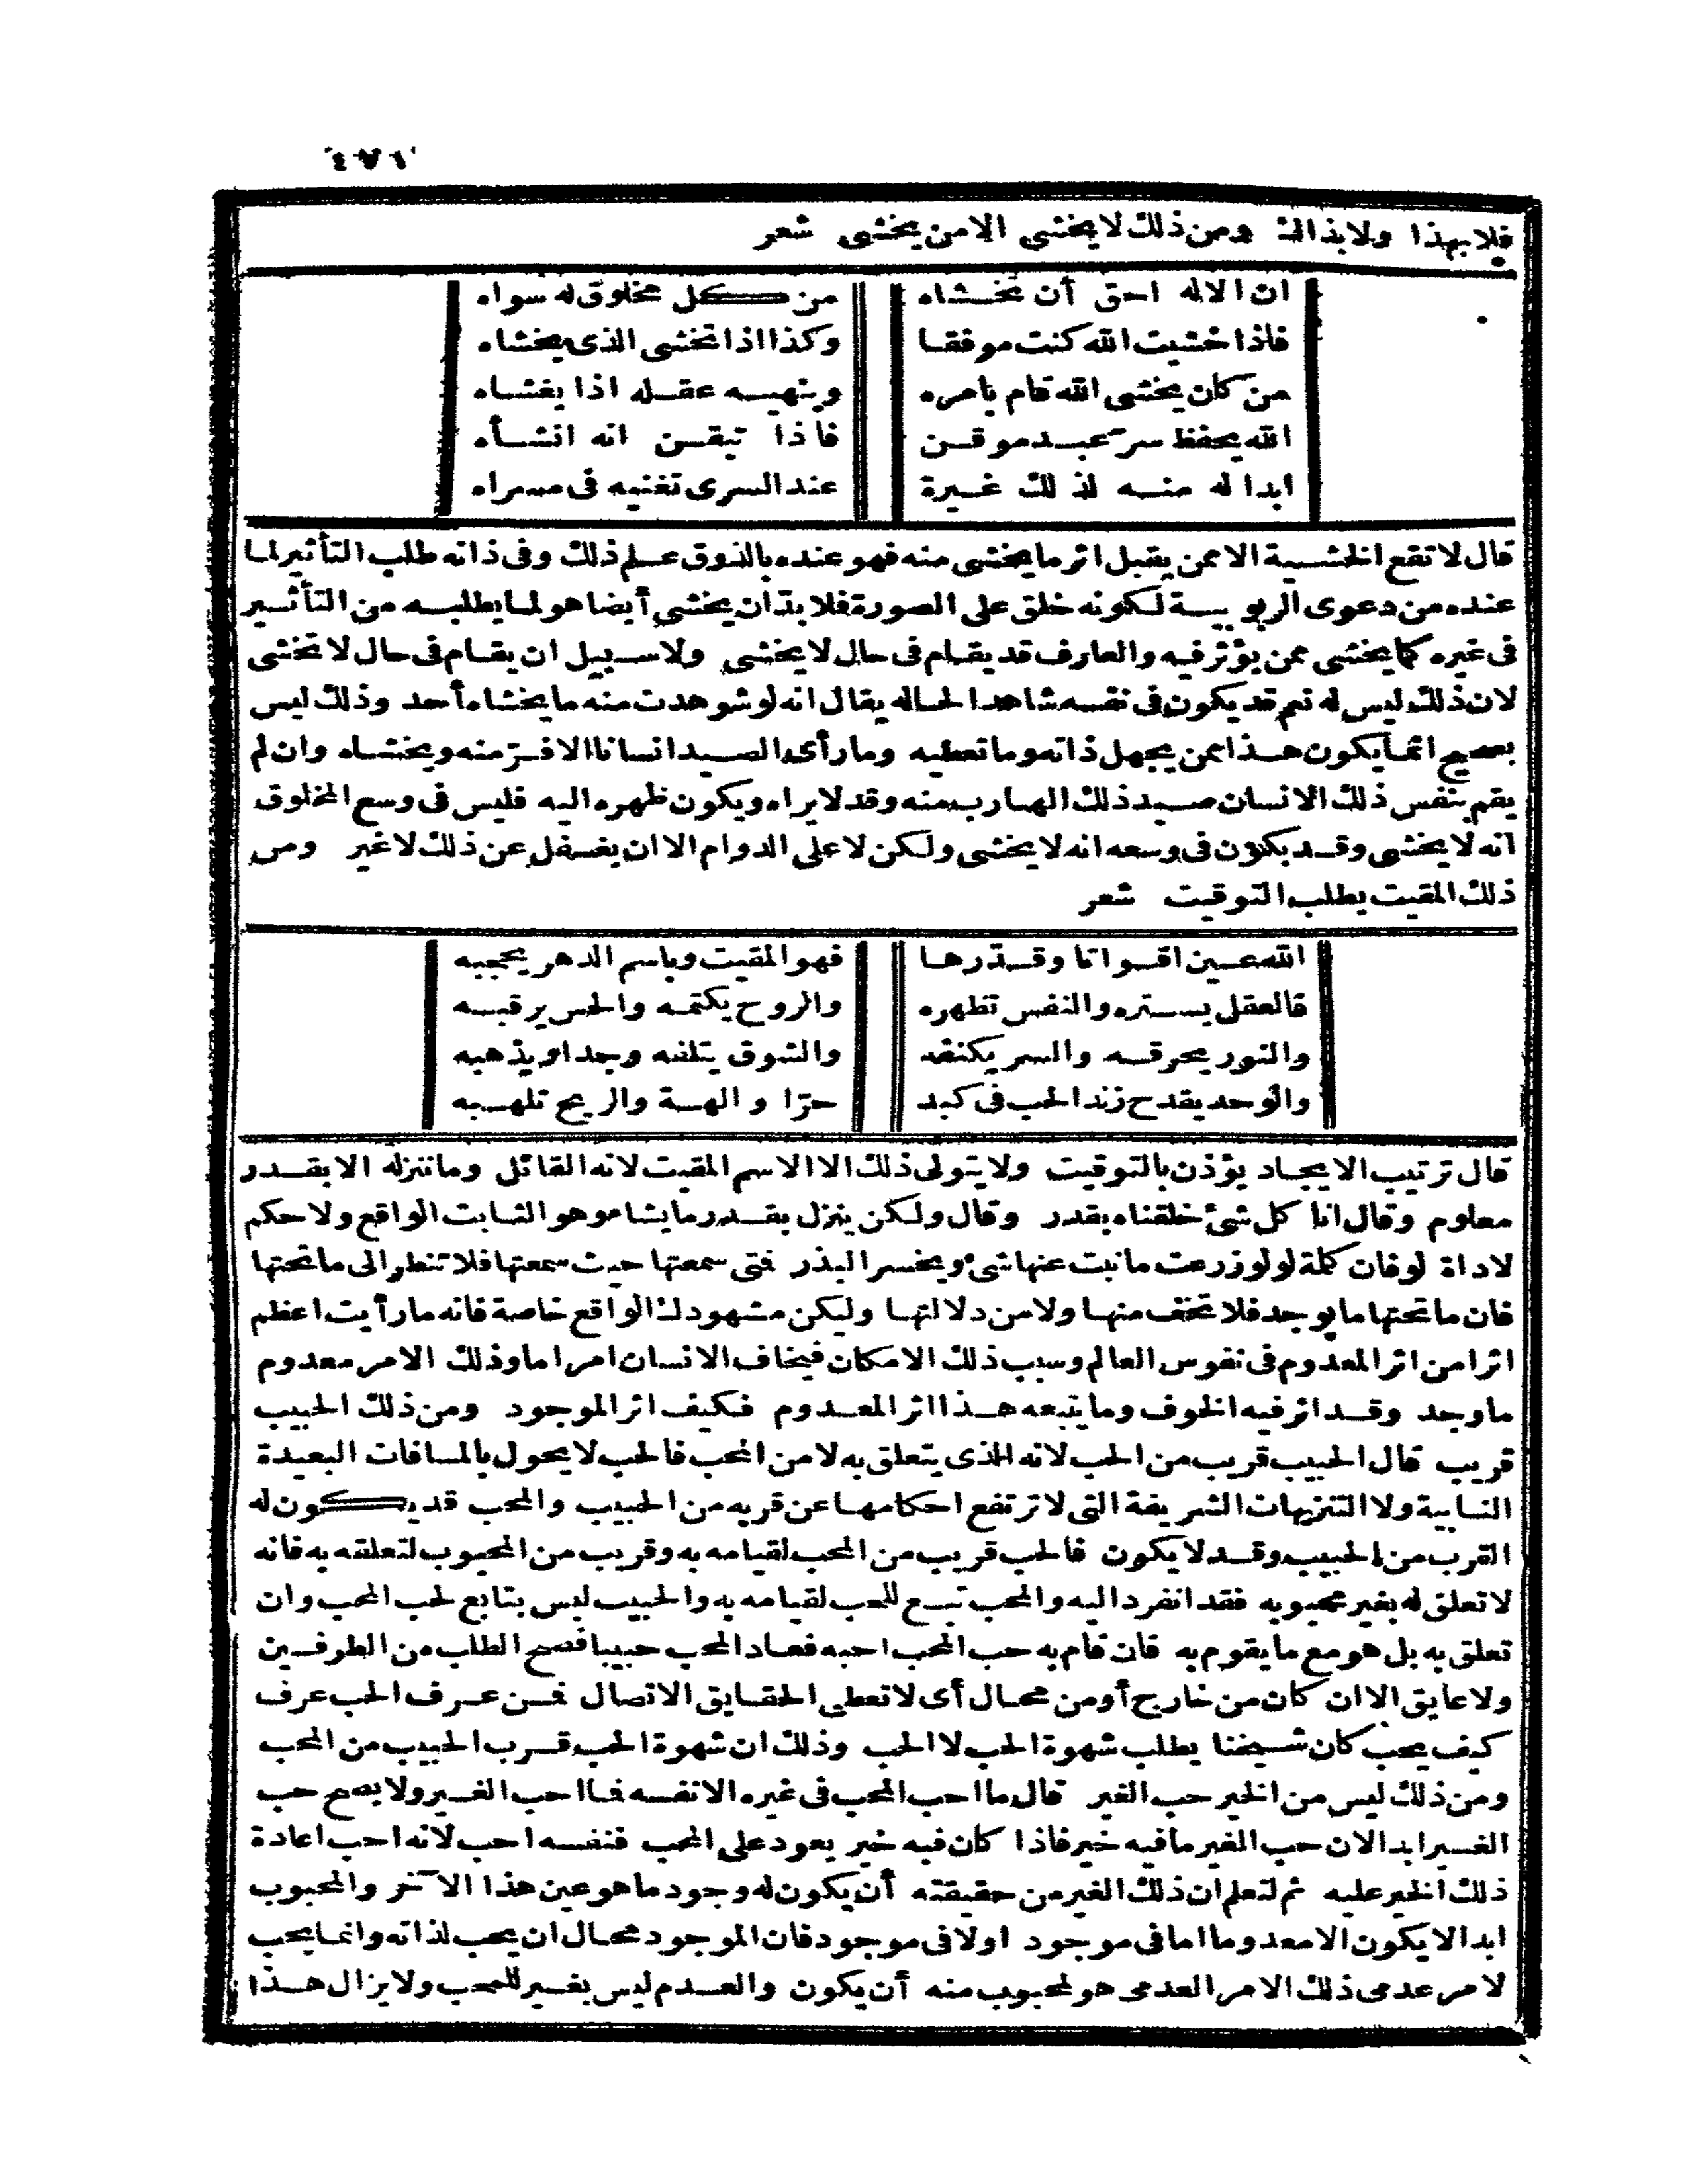 ٤٧٦
فلا بهذا ولا بذالك ومن ذلك لا يخشى الا من يخشى شعر
ان الاله احق أن تخشاه من كل مخلوق له سواه
فاذا خشيت الله كنت موفقا وكذا اذا تخشى الذى يخشاه
من كان يخشى الله قام بامره وينهيه عقله اذا يغشاه
الله يحفظ سر عبد موقن فاذا تيقن انه انشأه
ابدا له منه لذلك غيرة عند السرى تغنيه فى مسراه
قال لا تقع الخشية الا ممن يقبل اثر ما يخشى منه فهو عنده بالذوق علم ذلك وفى ذاته طلب التأثير لما
عنده من دعوى الربوبية لكونه خلق على الصورة فلا بد ان يخشى أيضا هو لما يطلبه من التأثير
فى غيره كما يخشى ممن يؤثر فيه والعارف قد يقام فى حال لا يخشى ولا سبيل ان يقام فى حال لا تخشى
لان ذلك ليس له نعم قد يكون فى نفسه شاهدا لحاله يقال انه لو شوهدت منه ما يخشاه أحد وذلك ليس
بصحيح انما يكون هذا ممن يجهل ذاته وما تعطيه وما رأى الصيد انسانا الا فر منه ويخشاه وان لم
يقم بنفس ذلك الانسان صيد ذلك الهارب منه وقد لا يراه ويكون ظهره اليه فليس فى وسع المخلوق
انه لا يخشى وقد يكون فى وسعه انه لا يخشى ولكن لا على الدوام الا ان يغفل عن ذلك لا غير ومن
ذلك المقيت يطلب التوقيت شعر
الله عين اقواتا وقدرها فهو المقيت وباسم الدهر يحجبه
فالعقل يستره والنفس تظهره والروح يكتمه والحس يرقبه
والنور يحرقه والسر يكنفه والشوق يتلفه وجدا ويذهبه
والوجد يقدح زند الحب فى كبد حرا والهة والريح تلهبه
قال ترتيب الايجاد يؤذن بالتوقيت ولا يتولى ذلك الا الاسم المقيت لانه القائل وما ننزله الا بقدر
معلوم وقال انا كل شئ خلقناه بقدر وقال ولكن ينزل بقدر ما يشاء وهو الثابت الواقع ولا حكم
لاداة لو فان كلمة لو لو زرعت ما نبت عنها شئ ويخسر البذر فتى سمعتها حيث سمعتها فلا تنظر الى ما تحتها
فان ما تحتها ما يوجد فلا تخف منها ولا من دلالتها وليكن مشهودك الواقع خاصة فانه ما رأيت اعظم
اثرا من اثر المعدوم فى نفوس العالم وسبب ذلك الامكان فيخاف الانسان امرا ما وذلك الامر معدوم
ما وجد وقد اثر فيه الخوف وما يتبعه هذا اثر المعدوم فكيف اثر الموجود ومن ذلك الحبيب
قريب قال الحبيب قريب من الحب لانه الذى يتعلق به لا من المحب فالحب لا يحول بالمسافات البعيدة
النابية ولا التنزيهات الشريفة التى لا ترتفع احكامها عن قربه من الحبيب والمحب قد يكون له
القرب من الحبيب وقد لا يكون فالحب قريب من المحب لقيامه به وقريب من المحبوب لتعلقه به فانه
لا تعلق له بغير محبوبه فقد انفرد اليه والمحب تبع للحب لقيامه به والحبيب ليس بتابع لحب المحب وان
تعلق به بل هو مع ما يقوم به فان قام به حب المحب احبه فعاد المحب حبيبا فصح الطلب من الطرفين
ولا عايق الا ان كان من خارج أو من محال أى لا تعطى الحقايق الاتصال فمن عرف الحب عرف
كيف يحب كان شيخنا يطلب شهوة الحب لا الحب وذلك ان شهوة الحب قرب الحبيب من المحب
ومن ذلك ليس من الخير حب الغير قال ما احب المحب فى غيره الا نفسه فما احب الغير ولا يصح حب
الغير ابدا لان حب الغير ما فيه خير فاذا كان فيه خير يعود على المحب فنفسه احب لانه احب اعادة
ذلك الخير عليه ثم لتعلم ان ذلك الغير من حقيقته أن يكون له وجود ما هو عين هذا الآخر والمحبوب
ابدا لا يكون الا معدوما اما فى موجود او لا فى موجود فان الموجود محال ان يحب لذاته وانما يحب
لامر عدمى ذلك الامر العدمى هو المحبوب منه أن يكون والعدم ليس بغير للمحب ولا يزال هذا